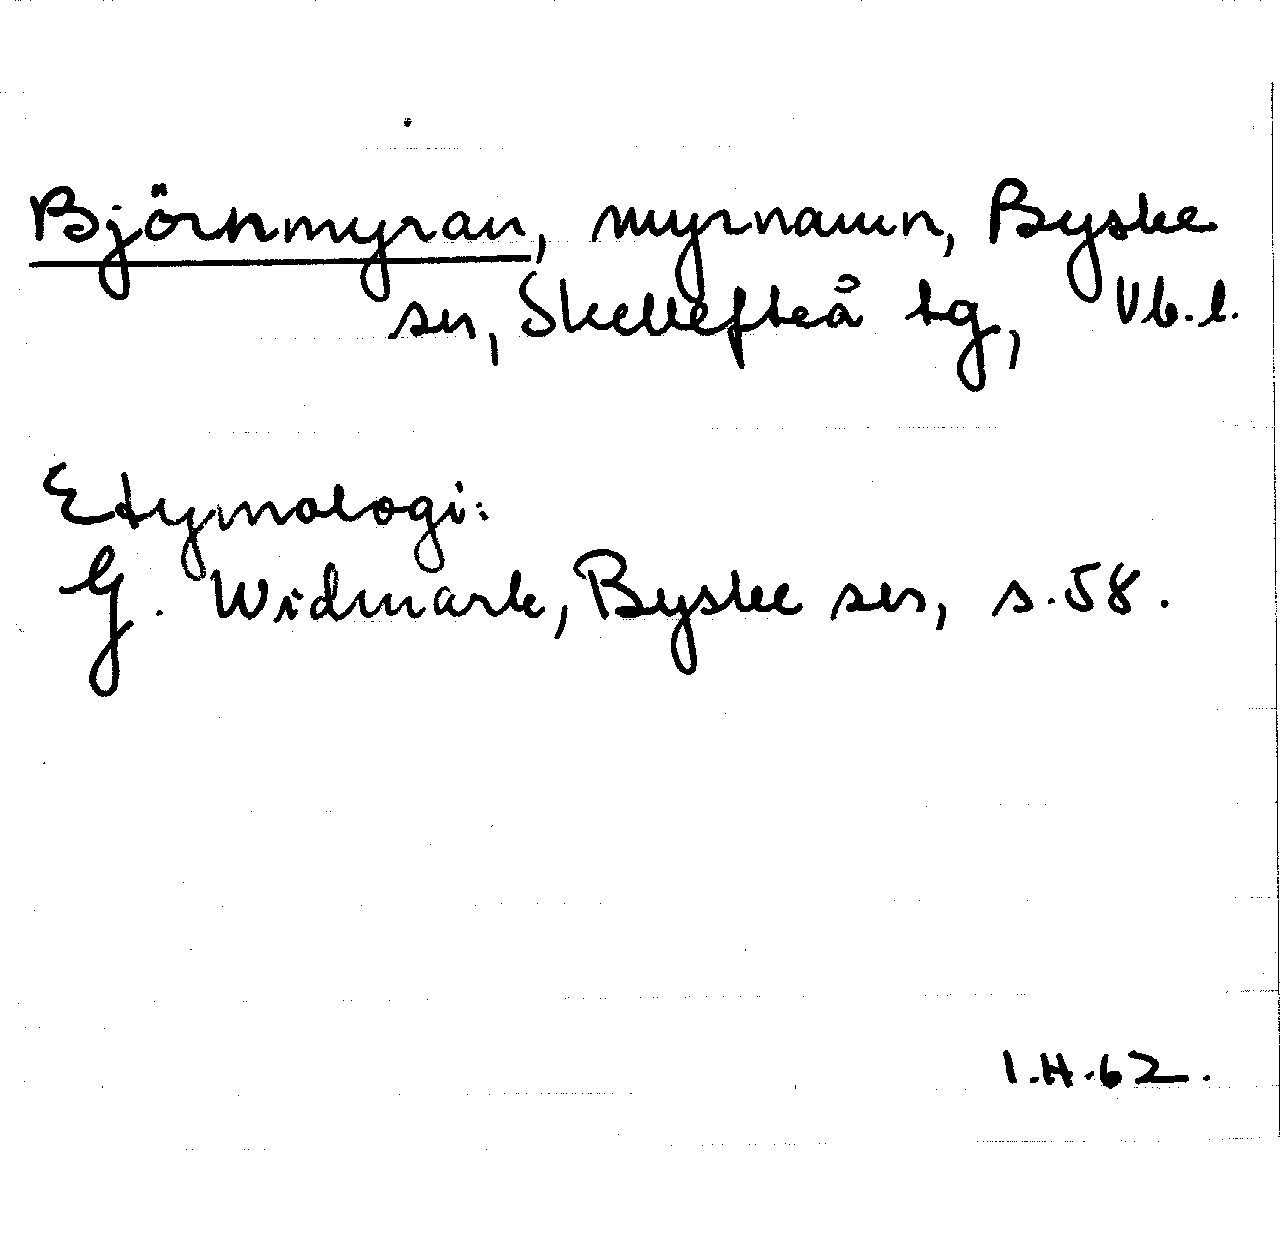 Björnmyran, myrnamn, Byske
sn, Skellefteå tg, Vb.l.
Etymologi:
G. Widmark, Byske sn, s.58.
I.H.62.